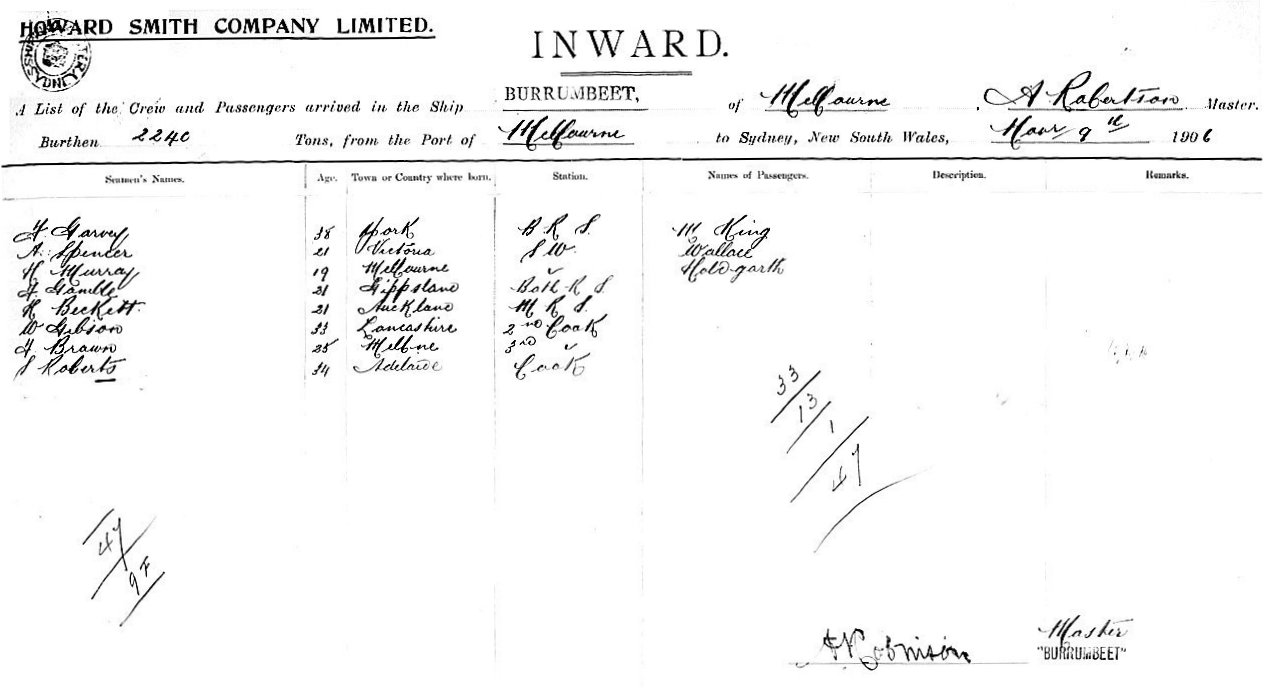 HOWARD SMITH COMPANY LIMITED.
INWARD.
A List of the Crew and Passengers arrived in the Ship BURRUMBEET, of Melbourne, A Robertson Master.
Burthen 2240 Tons, from the Port of Melbourne to Sydney, New South Wales, 9th 1906
Seamen's Names. Age. Town or Country where born. Station. Names of Passengers. Description. Remarks.
Garvey 38 York B. R. S. M King
A. Spencer 21 Victoria S W. Wallace
H Murray 19 Melbourne " Holdgarth
Gamble 21 Gippsland Both R S.
H Beckett. 21 Auckland M R S.
W Gibson 33 Lancashire 2nd Cook
Brown 25 Melbne 3rd "
S Roberts 34 Adelaide Cook
33
13
1
47
47
9 F
Master
"BURRUMBEET"